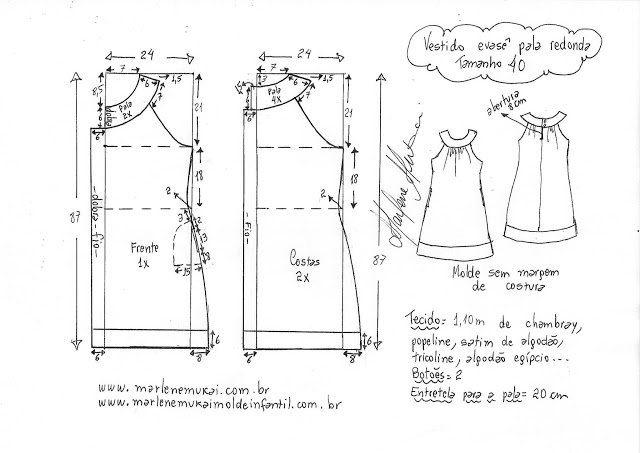 Vestido evasê pala redonda
Tamanho 40
24
7
1,5
6
7
8,5
Pala
2x
6
dobra
6
21
18
87
2
-dobra-fio-
3
2
13
8
15
Frente
1x
6
6
8
24
7
1,5
3
6
7
Pala
4x
6
21
18
2
87
-Fio-
Costas
2x
6
6
8
abertura
8cm
Marlene Mukai
Molde sem margem
de costura
Tecido= 1,10m de chambray,
popeline, satim de algodão,
tricoline, algodão egípcio...
Botões= 2
Entretela para a pala= 20 cm
www.marlenemukai.com.br
www.marlenemukaimoldeinfantil.com.br